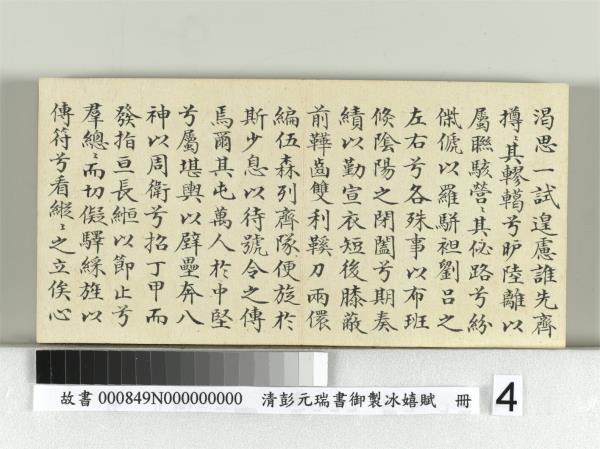 渴思一試遑慮誰先齊
撙〻其轇轕兮眆陸離以
屬聯駭營〻其俶路兮紛
儆俿以羅駢袒劉呂之
左右兮各殊事以布班
倐隂陽之閉闔兮期奏
績以勤宣衣短後膝蔽
前鞾齒雙利鞵刀兩儇
編伍森列齊隊便旋於
斯少息以待號令之傳
焉爾其屯萬人於中堅
兮屬堪輿以壁壘奔八
神以周衛兮招丁甲而
發指亘長絙以節止兮
羣總〻而切儗驛綵旌以
傳符兮看縱〻之立俟心
故書 000849N000000000 清彭元瑞書御製冰嬉賦 冊
4